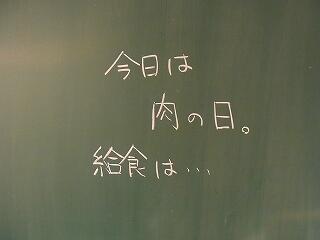 今日は
肉の日。
給食は…